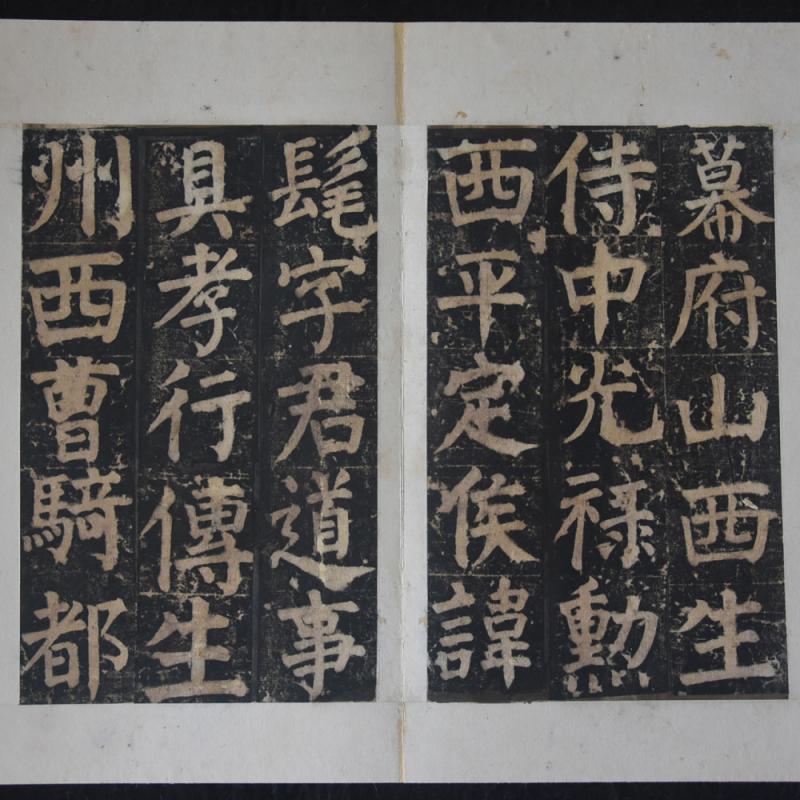 幕府山西生
侍中光祿勳
西平定侯諱
髦字君道事
具孝行傳生
州西曹騎都